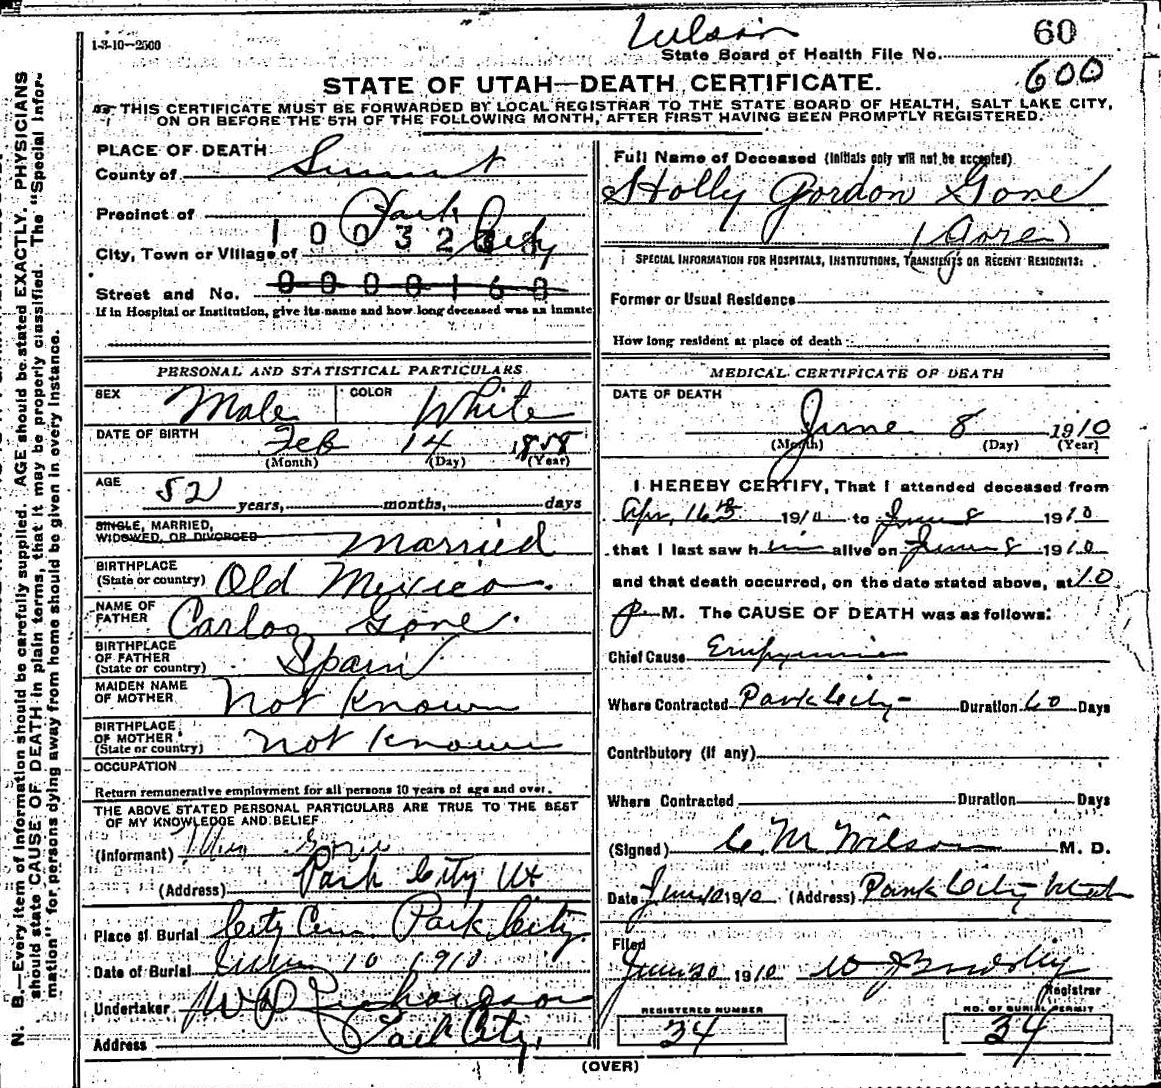 1-3-10-2500
Wilson
State Board of Health File No. 60
600
STATE OF UTAH—DEATH CERTIFICATE.
THIS CERTIFICATE MUST BE FORWARDED BY LOCAL REGISTRAR TO THE STATE BOARD OF HEALTH, SALT LAKE CITY,
ON OR BEFORE THE 5TH OF THE FOLLOWING MONTH, AFTER FIRST HAVING BEEN PROMPTLY REGISTERED.
N. B.—Every item of information should be carefully supplied. AGE should be stated EXACTLY. PHYSICIANS
should state CAUSE OF DEATH in plain terms, that it may be properly classified. The "Special Infor-
mation" for persons dying away from home should be given in every instance.
PLACE OF DEATH
County of Summit
Precinct of Park City
1003238
City, Town or Village of
Street and No. 0000160
If in Hospital or Institution, give its name and how long deceased was an inmate
PERSONAL AND STATISTICAL PARTICULARS
SEX Male COLOR White
DATE OF BIRTH Feb 14 1858
(Month) (Day) (Year)
AGE 52 years, months, days
SINGLE, MARRIED,
WIDOWED, OR DIVORCED Married
BIRTHPLACE
(State or country) Old Mexico.
NAME OF
FATHER Carlos Gone.
BIRTHPLACE
OF FATHER
(State or country) Spain
MAIDEN NAME
OF MOTHER Not Known
BIRTHPLACE
OF MOTHER
(State or country) Not Known
OCCUPATION
Return remunerative employment for all persons 10 years of age and over.
THE ABOVE STATED PERSONAL PARTICULARS ARE TRUE TO THE BEST
OF MY KNOWLEDGE AND BELIEF
(Informant)
(Address) Park City Ut
Place of Burial City Cem. Park City.
Date of Burial June 10 1910
Undertaker W D Richardson
Address Park City,
Full Name of Deceased (Initials only will not be accepted)
Holly Gordon Gone
(Gore)
SPECIAL INFORMATION FOR HOSPITALS, INSTITUTIONS, TRANSIENTS OR RECENT RESIDENTS:
Former or Usual Residence
How long resident at place of death
MEDICAL CERTIFICATE OF DEATH
DATE OF DEATH
June 8 1910
(Month) (Day) (Year)
I HEREBY CERTIFY, That I attended deceased from
Apr. 16th 1910 to June 8 1910
that I last saw him alive on June 8 1910
and that death occurred, on the date stated above, at 10
p M. The CAUSE OF DEATH was as follows:
Chief Cause Empyemia
Where Contracted Park City - Duration 60 Days
Contributory (If any)
Where Contracted Duration Days
(Signed) C. M. Wilson M. D.
Date June 10 1910 (Address) Park City Utah
Filed
June 20 1910
Registrar
REGISTERED NUMBER
34
NO. OF BURIAL PERMIT
34
(OVER)